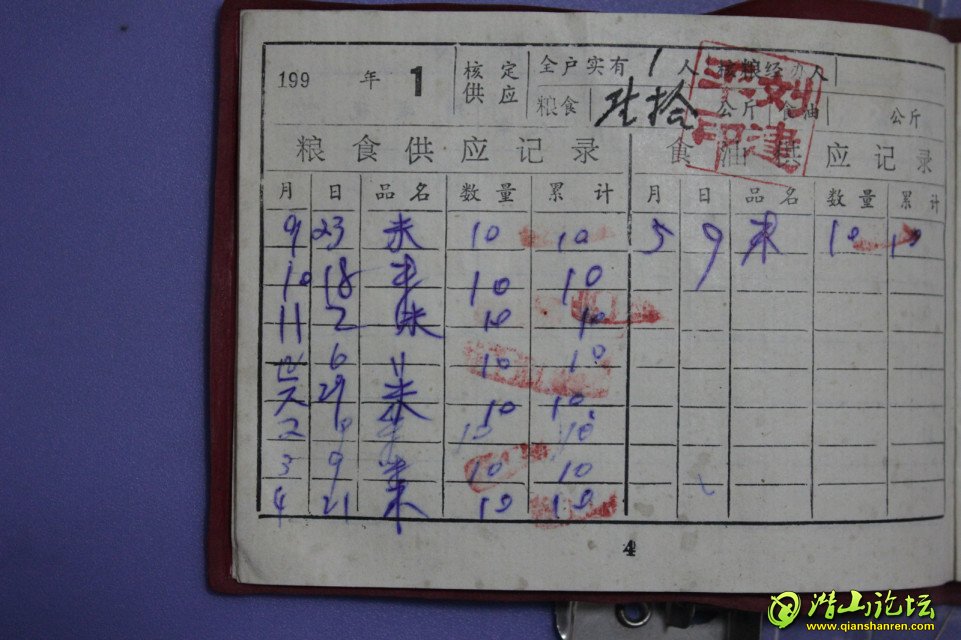 199 年 1 核定供应 全户实有 1 人 核粮经办人
粮食 拾 公斤 食油 公斤
刘津印
粮食供应记录 食油供应记录
月 日 品名 数量 累计 月 日 品名 数量 累计
9 23 米 10 10 5 9 米 10 10
10 18 米 10 10
11 2 米 10 10
6 〃 10 10
29 米 10 10
2 9 米 10 10
3 9 米 10 10
4 21 米 10 10
4
潜山论坛
www.qianshanren.com